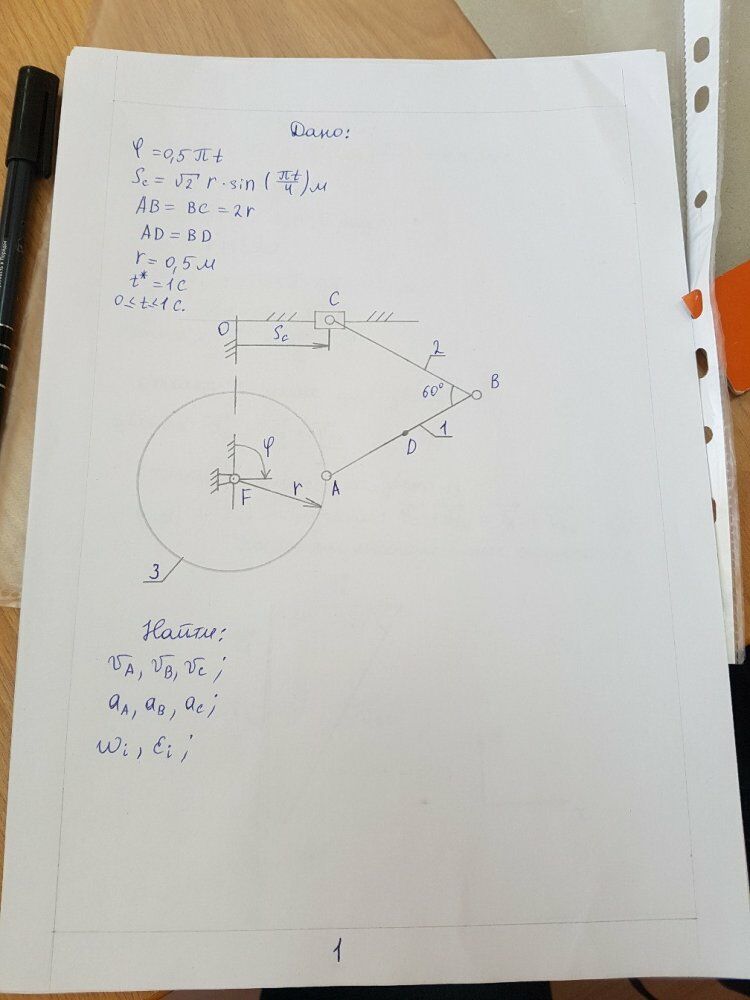 Дано:
φ = 0,5 π t
Sc = √2 r · sin (πt/4) м
AB = BC = 2r
AD = BD
r = 0,5 м
t* = 1 c
0 ≤ t ≤ 1 c.
C
O
Sc
2
B
60°
1
D
φ
A
r
F
3
Найти:
vA, vB, vc;
aA, aB, ac;
ωi, εi;
1